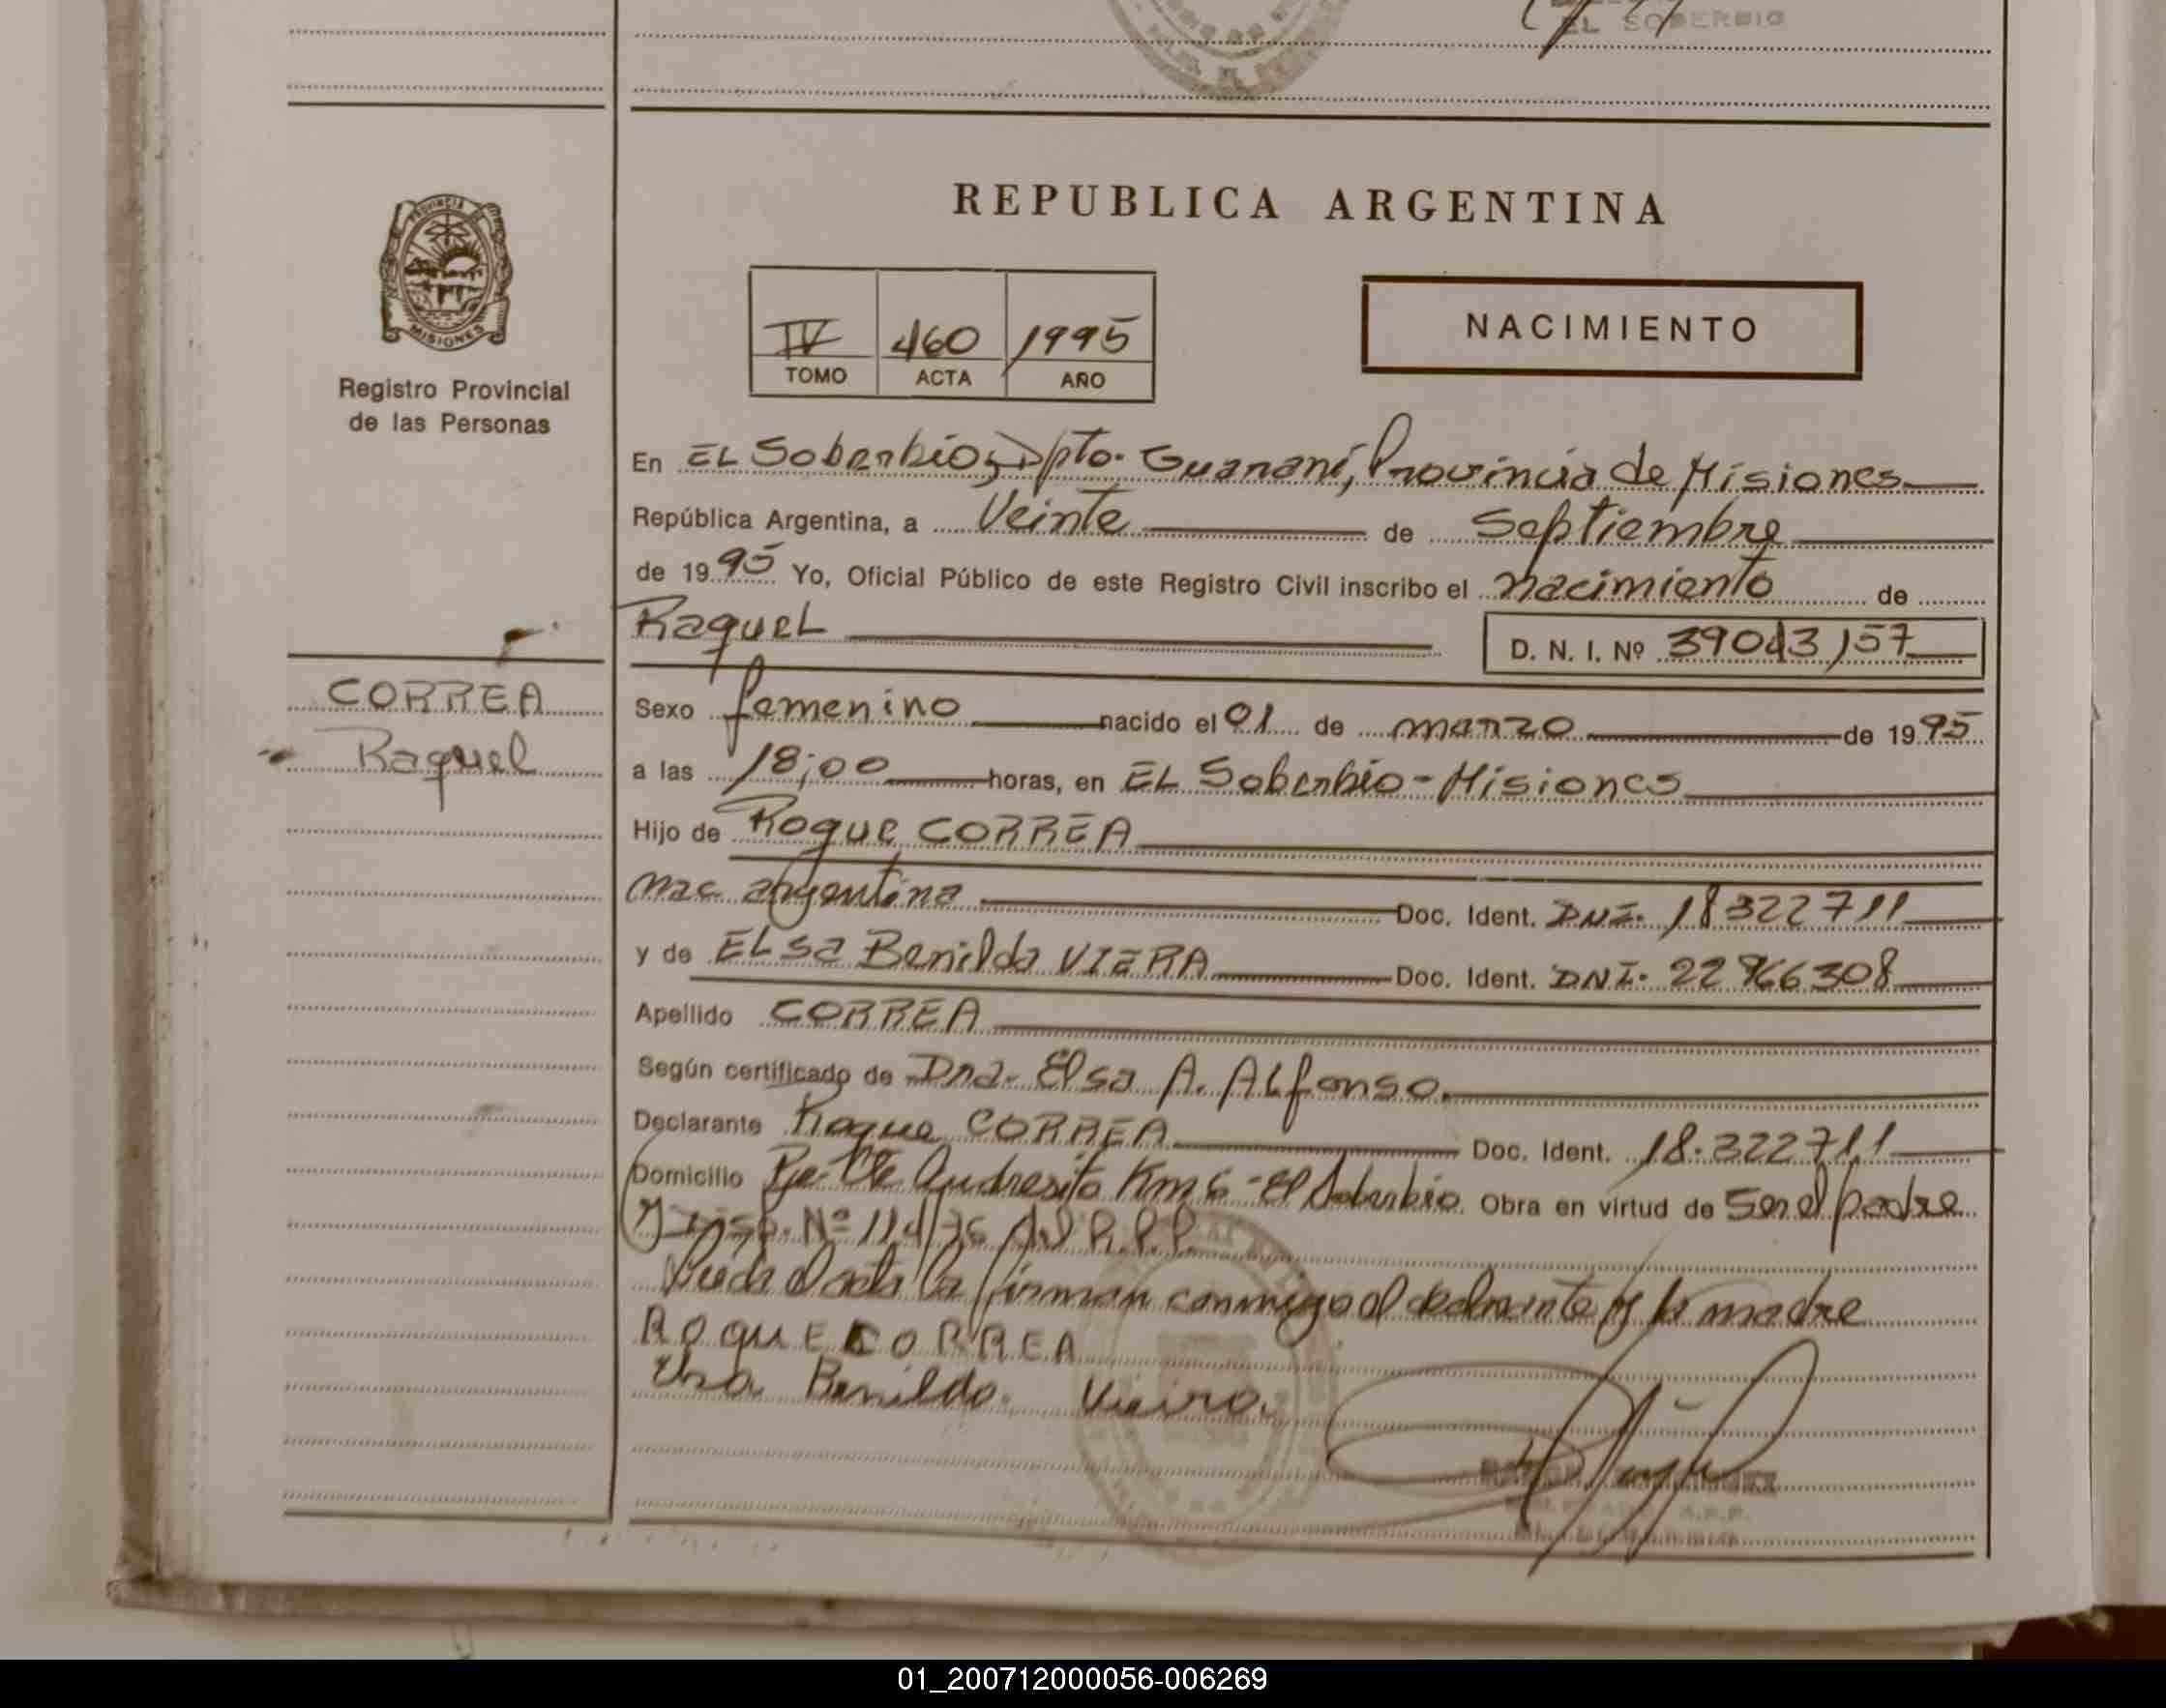 EL SOBERBIO
REPUBLICA ARGENTINA
PROVINCIA DE
MISIONES
Registro Provincial
de las Personas
IV 460 1995
TOMO ACTA AÑO
NACIMIENTO
En EL Soberbio, Dpto. Guaraní, Provincia de Misiones
República Argentina, a Veinte de Septiembre
de 1995 Yo, Oficial Público de este Registro Civil inscribo el nacimiento de
Raquel
D. N. I. Nº 39043157
CORREA
Raquel
Sexo femenino nacido el 01 de marzo de 1995
a las 18;00 horas, en EL Soberbio - Misiones
Hijo de Roque CORREA
nac argentina Doc. Ident. DNI. 18322711
y de ELsa Benilda VIERA Doc. Ident. DNI. 22966308
Apellido CORREA
Según certificado de Dra. Elsa A. ALfonso.
Declarante Roque CORREA Doc. Ident. 18.322711
Domicilio Pje Cte Andresito Km 6 - El Soberbio. Obra en virtud de Ser el padre
y Disp. Nº 114/76 del R.P.P.
Leída el acta la firman conmigo el declarante y la madre
ROQUE CORREA
Elsa Benilda. Vieira.
01_200712000056-006269